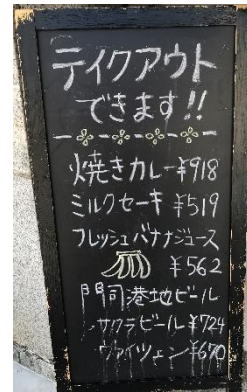 テイクアウト
できます!!
焼きカレー¥918
ミルクセーキ ¥519
フレッシュバナナジュース
¥562
門司港地ビール
サクラビール¥724
ヴァイツェン¥670